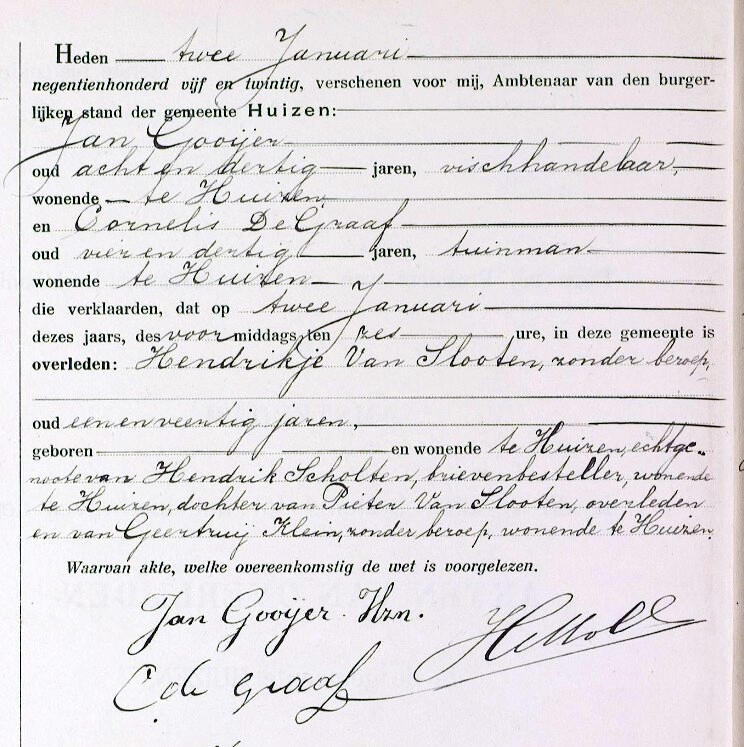 Heden twee Januari
negentienhonderd vijf en twintig, verschenen voor mij, Ambtenaar van den burger-
lijken stand der gemeente Huizen:
Jan Gooijer
oud acht en dertig jaren, vischhandelaar,
wonende te Huizen
en Cornelis De Graaf
oud vier en dertig jaren, tuinman
wonende te Huizen
die verklaarden, dat op twee Januari
dezes jaars, des voormiddags ten zes ure, in deze gemeente is
overleden: Hendrikje Van Slooten, zonder beroep,
oud eenenveertig jaren,
geboren en wonende te Huizen, echtge„
noote van Hendrik Scholten, brievenbesteller, wonende
te Huizen, dochter van Pieter Van Slooten, overleden
en van Geertruij Klein, zonder beroep, wonende te Huizen.
Waarvan akte, welke overeenkomstig de wet is voorgelezen.
Jan Gooijer Hzn.
C de Graaf